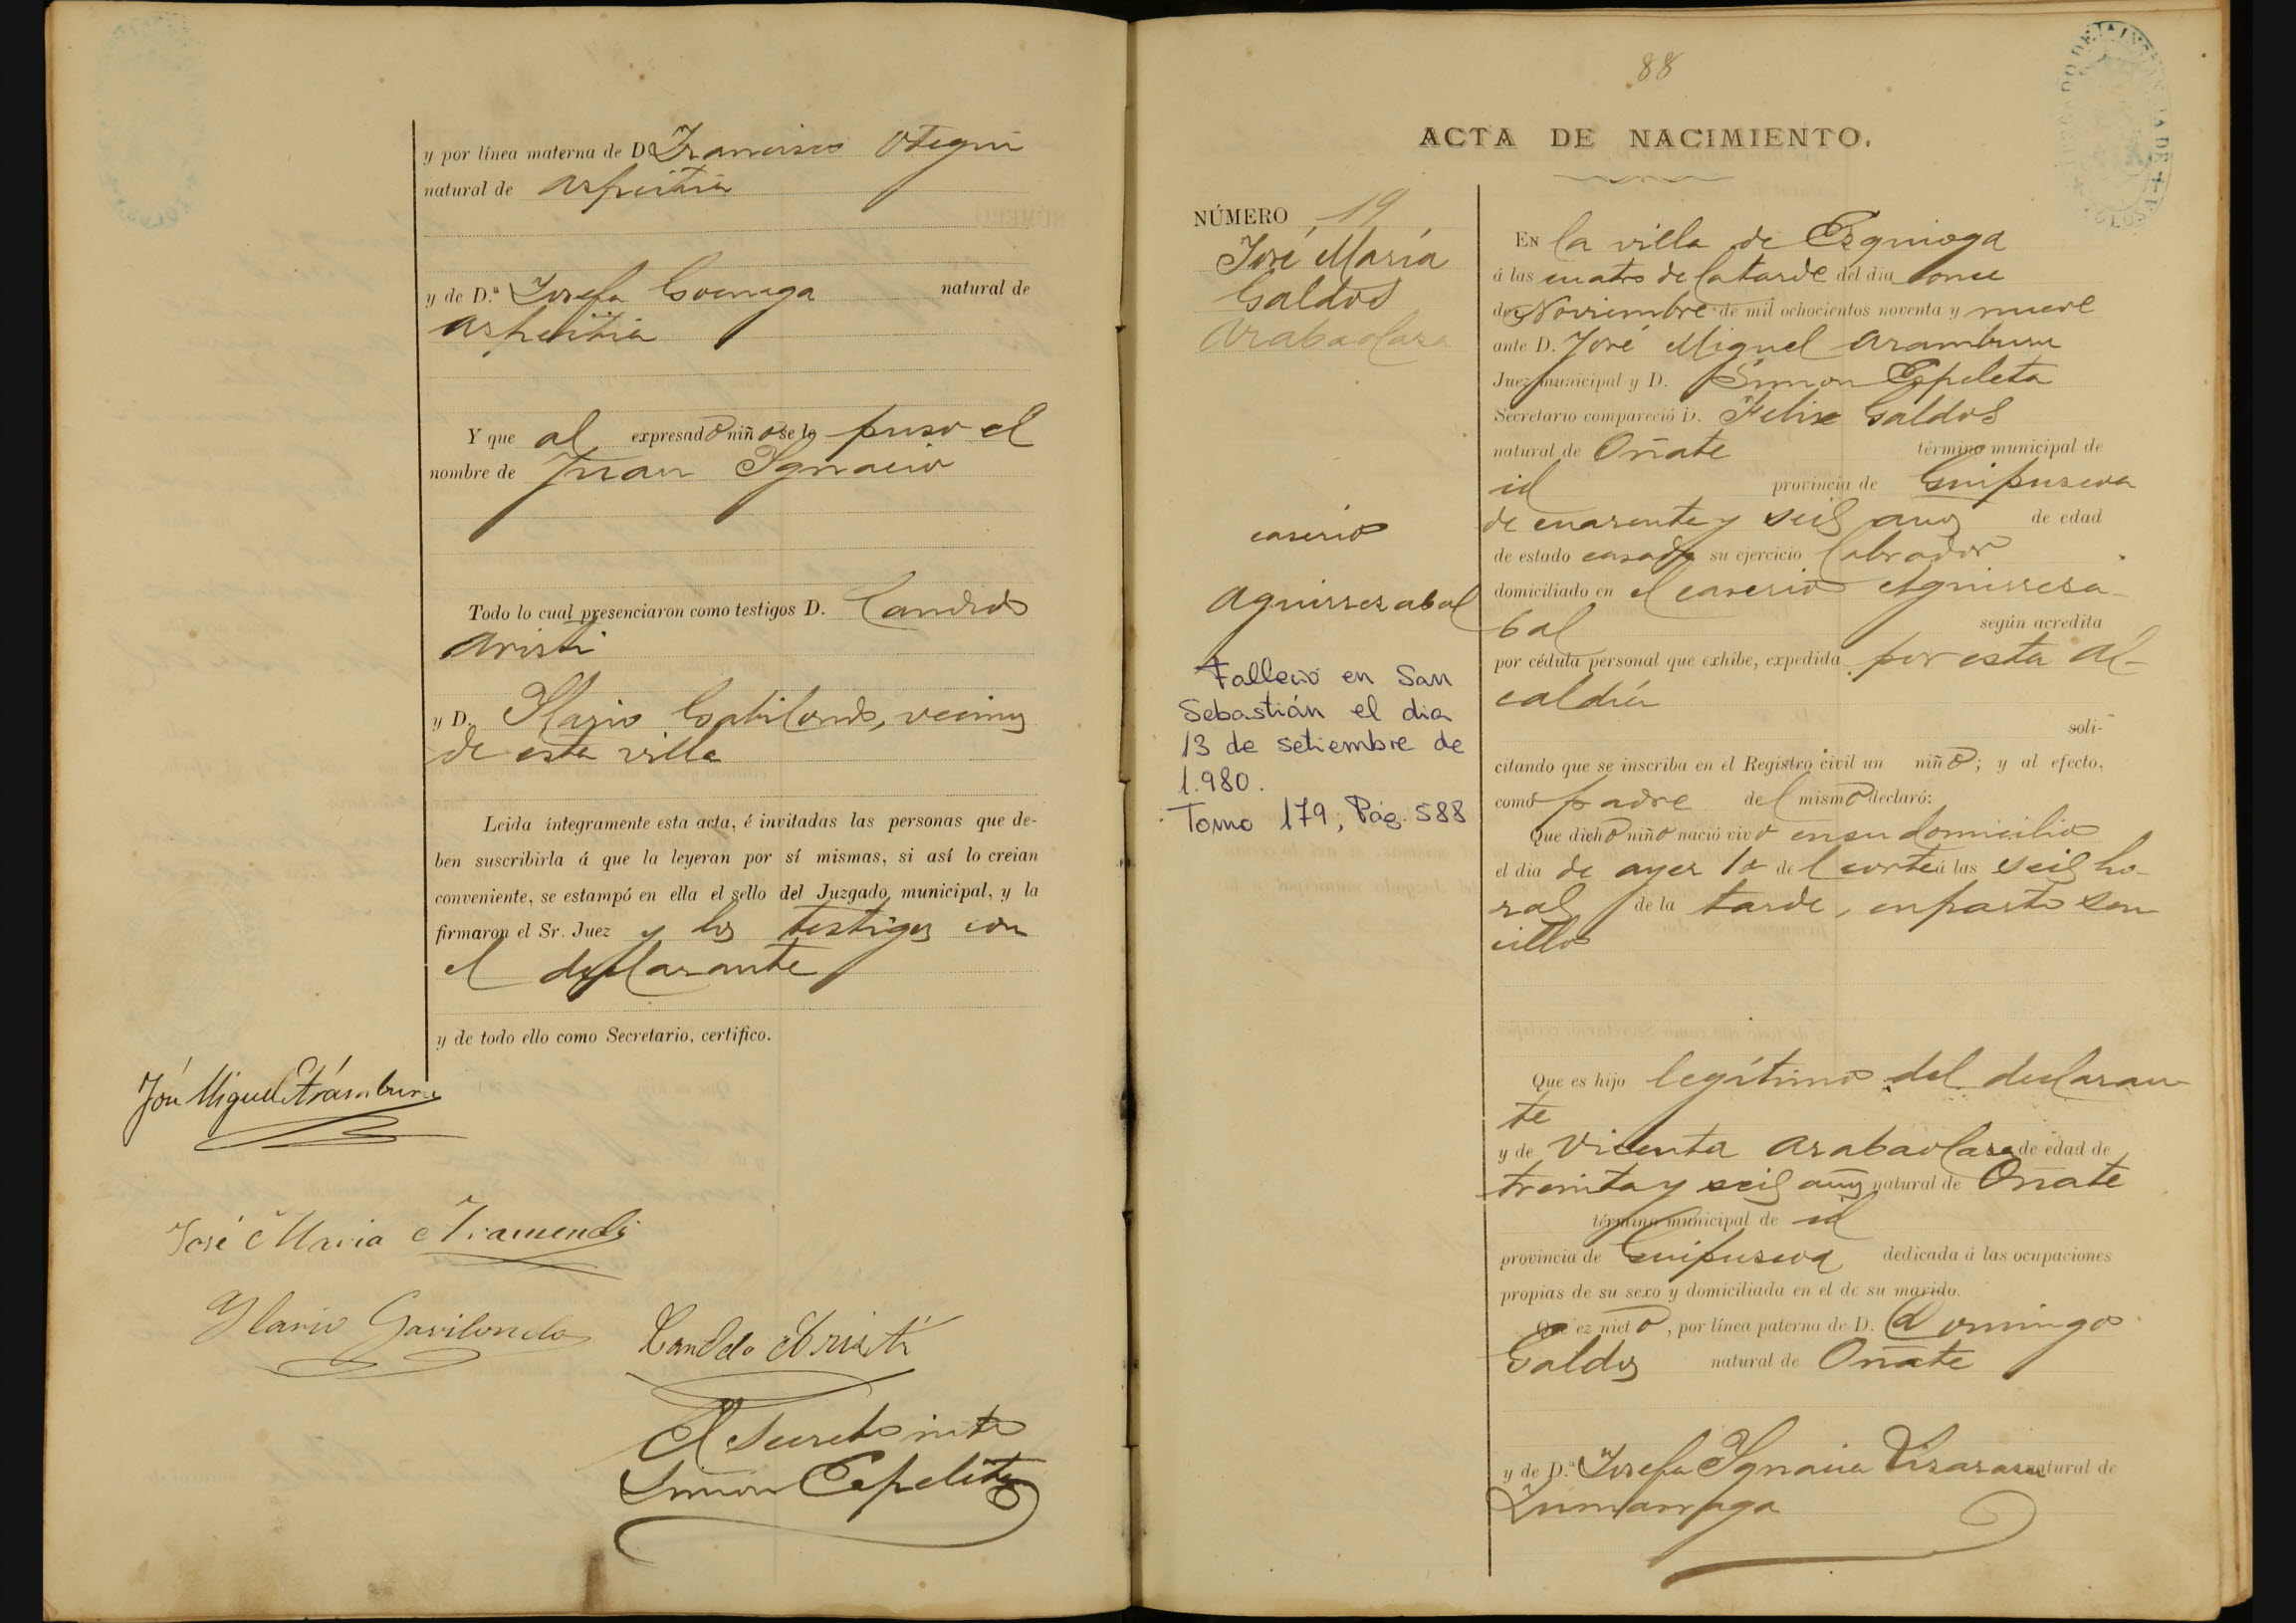 y por línea materna de D. Francisco Otegui
natural de Aspeitia
y de D.ª Josefa Goenaga natural de
Aspeitia
Y que al expresado niño se le puso el
nombre de Juan Ignacio
Todo lo cual presenciaron como testigos D. Candido
Aristi
y D. Ilario Gabilondo, vecinos
de esta villa
Leida íntegramente esta acta, é invitadas las personas que de-
ben suscribirla á que la leyeran por sí mismas, si así lo creian
conveniente, se estampó en ella el sello del Juzgado municipal, y la
firmaron el Sr. Juez y los testigos con
el declarante
y de todo ello como Secretario, certifico.
José Miguel Aramburu
José Maria Aramendi
Ilario Gavilondo
Candido Aristi
El Secretario
Simon Espeleta
88
ACTA DE NACIMIENTO.
NÚMERO 19
José María
Galdos
Arabaolasa
caserio
Aguirrezabal
Falleció en San
Sebastián el dia
13 de setiembre de
1.980.
Tomo 179, Pág. 588
EN la villa de Ezquioga
á las cuatro de la tarde del dia once
de Noviembre de mil ochocientos noventa y nueve
ante D. José Miguel Aramburu
Juez municipal y D. Simon Espeleta
Secretario compareció D. Felix Galdos
natural de Oñate término municipal de
id provincia de Guipuscoa
de cuarenta y seis años de edad
de estado casado su ejercicio labrador
domiciliado en el caserio Aguirresa-
bal según acredita
por cédula personal que exhibe, expedida por esta Al-
caldía
soli-
citando que se inscriba en el Registro civil un niño; y al efecto,
como padre del mismo declaró:
Que dicho niño nació vivo en su domicilio
el dia de ayer 10 del corte á las seis ho-
ras de la tarde, en parto sen
cillo
Que es hijo legítimo del declaran-
te
y de Vicenta Arabaolasa de edad de
treinta y seis años natural de Oñate
término municipal de id
provincia de Guipuscoa dedicada á las ocupaciones
propias de su sexo y domiciliada en el de su marido.
Que ez nieto, por línea paterna de D. Domingo
Galdos natural de Oñate
y de D.ª Josefa Ignacia natural de
Zumarraga